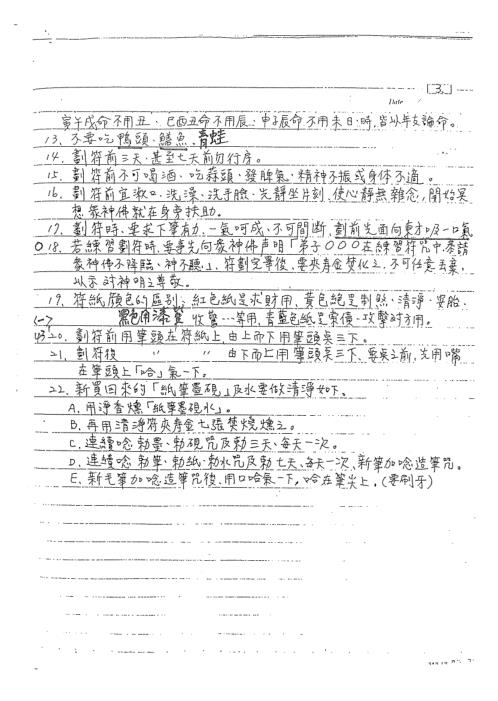 3.
Date
寅午戌命不用丑、巳酉丑命不用辰、申子辰命不用未日、時,皆以年支論命。
13. 不要吃鴨頭、鱔魚、青蛙
14. 劃符前三天、甚至七天前勿行房。
15. 劃符前不可喝酒、吃蒜頭、發脾氣、精神不振或身体不適。
16. 劃符前宜漱口、洗澡、洗手臉、先靜坐片刻、使心靜無雜念,開始冥
想眾神佛就在身旁扶助。
17. 劃符時、要求下筆有力、一氣呵成、不可間斷,劃前先面向東方吸一口氣
18. 若練習劃符時、要事先向眾神佛声明「弟子〇〇〇在練習符咒中,恭請
眾神佛不降臨、神不聽」,符劃完畢後,要夾寿金焚化之,不可任意丟棄,
以示对神明之尊敬。
19. 符紙顏色的區別;紅色紙是求財用、黃色紙是制煞、清淨、安胎、
收驚…等用,青藍色紙是索債、攻擊对方用。
20. 劃符前用筆頭在符紙上,由上而下用筆頭点三下。
21. 劃符後 〃 〃 由下而上用筆頭点三下,要点之前,先用嘴
在筆頭上「哈」氣一下。
22. 新買回來的「紙筆墨硯」及水要做清淨如下。
A. 用淨香燻「紙筆墨硯水」。
B. 再用清淨符夾寿金七張焚燒燻之。
C. 連續唸勅墨、勅硯咒及勅三天、每天一次。
D. 連續唸勅筆、勅紙、勅水咒及勅七天、每天一次、新筆加唸造筆咒。
E. 新毛筆加唸造筆咒後,用口哈氣一下,哈在筆尖上。(要刷牙)